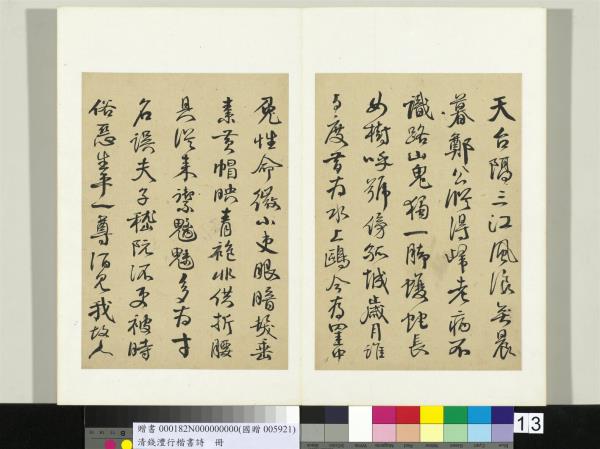 天台隔三江風浪無晨
暮鄭公縱得歸老病不
識路山鬼獨一脚蝮蛇長
如樹呼號傍孤城歲月誰
與度昔為水上鷗今為罝中
兔性命微小吏眼暗髮垂
素黃帽映青袍非供折腰
具從來禦魑魅多為才
名誤夫子嵇阮流更被時
俗惡生平一尊酒見我故人
贈書 000182N000000000(國贈 005921)
清錢澧行楷書詩 冊
13